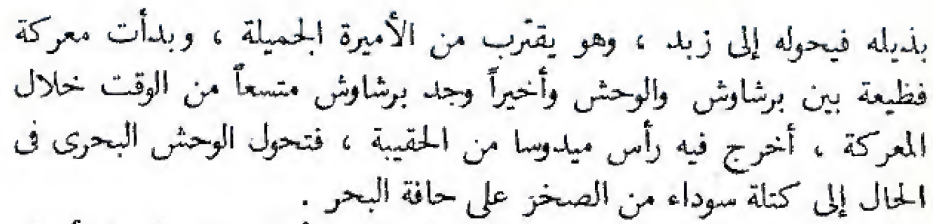 بذيله فيحوله إلى زبد ، وهو يقترب من الأميرة الجميلة ، وبدأت معركة
فظيعة بين برشاوش والوحش وأخيراً وجد برشاوش متسعاً من الوقت خلال
المعركة ، أخرج فيه رأس ميدوسا من الحقيبة ، فتحول الوحش البحرى فى
الحال إلى كتلة سوداء من الصخر على حافة البحر .